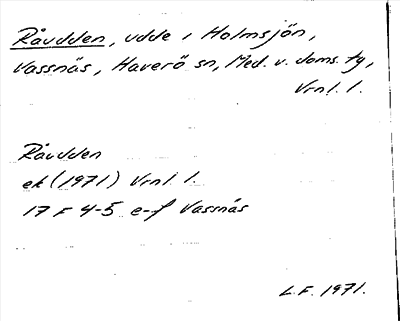 Råudden, udde i Holmsjön,
Vassnäs, Haverö sn, Med. v. doms. tg,
Vrnl. l.
Råudden
ek (1971) Vrnl l.
17 F 4-5 e-f Vassnäs
L.F. 1971.